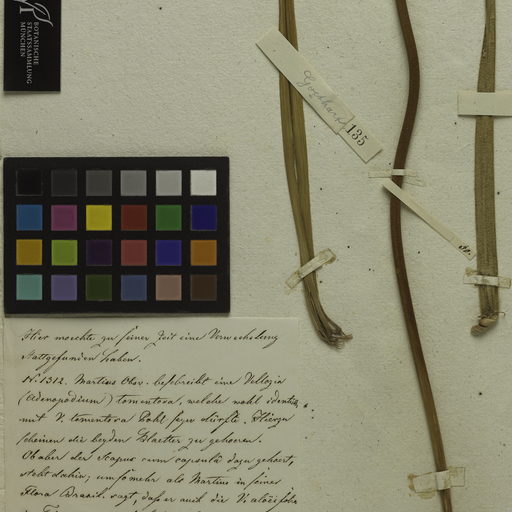 BOTANISCHE
STAATSSAMMLUNG
MÜNCHEN
135
Hier mochte zu seiner Zeit eine Verwechslung
Stattgefunden haben.
N. 1312. Martius Obs. beschreibt eine Vellozia
(Adenopodium) tomentosa, welche wohl identisch
mit V. tomentosa Pohl seyn dürfte. Hierzu
scheinen die beyden Blaetter zu gehoeren.
Ob aber der Scapus cum capsula dazu gehoert,
steht dahin; umsomehr als Martius in seiner
Flora Brasil. sagt, daß er auch die V. aloëifolia